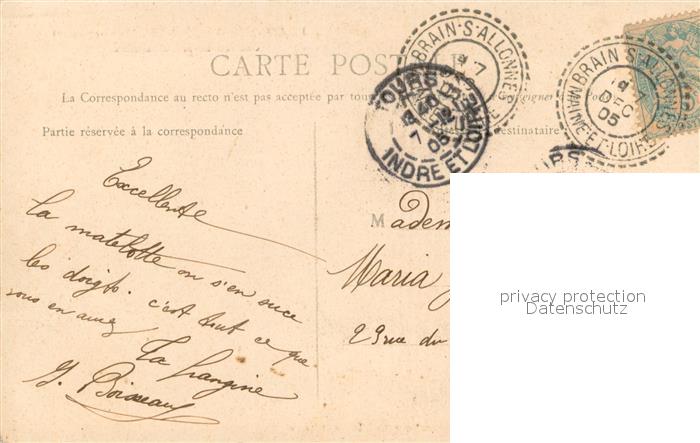 CARTE POSTALE
La Correspondance au recto n'est pas acceptée par tous
Partie réservée à la correspondance
destinataire
BRAIN-S-ALLONNES
7
DEC
05
TOURS
7
05
INDRE ET LOIRE
BRAIN-S-ALLONNES
DEC
05
MAINE-ET-LOIRE
Excellente
la matelotte on s'en suce
les doigts. c'est tout ce que
vous en aurez
La frangine
G. Boisseau
Madem
Maria
29 rue du
privacy protection
Datenschutz